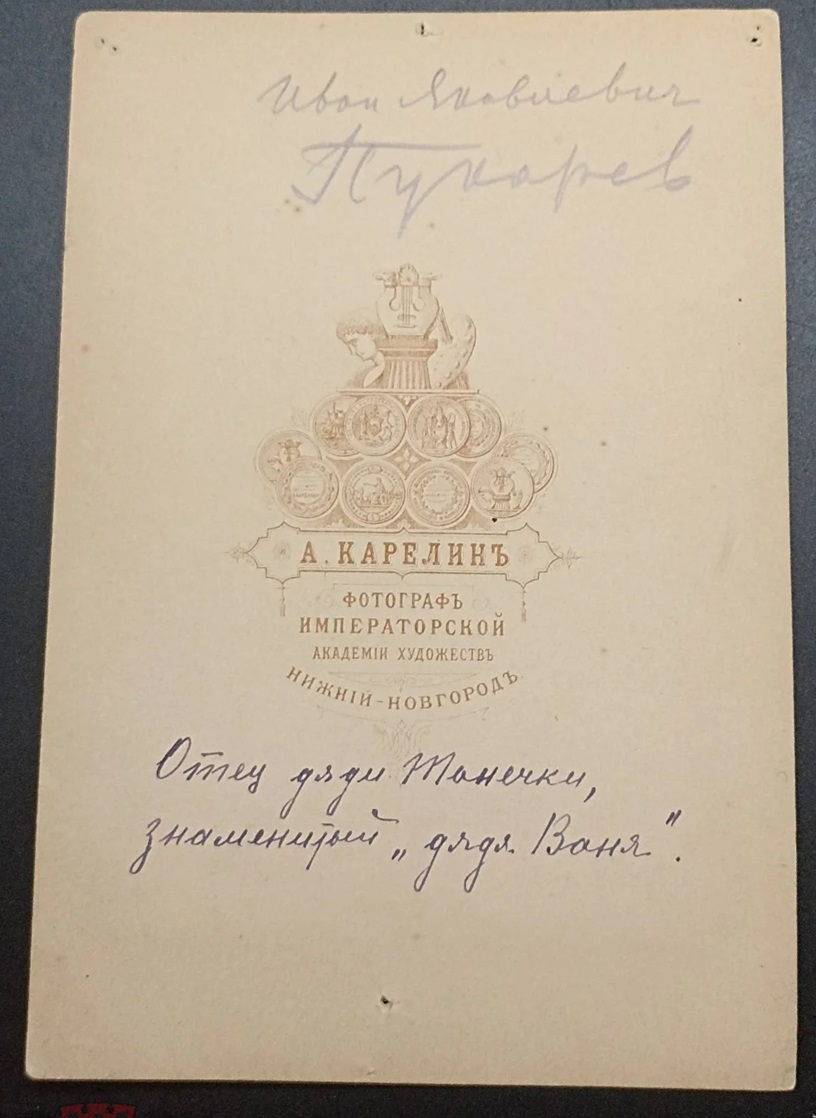 Иван Яковлевич
Пухарев
А. КАРЕЛИНЪ
ФОТОГРАФЪ
ИМПЕРАТОРСКОЙ
АКАДЕМІИ ХУДОЖЕСТВЪ
НИЖНІЙ-НОВГОРОДЪ
Отец дяди Танечки,
знаменитый „дядя Ваня".